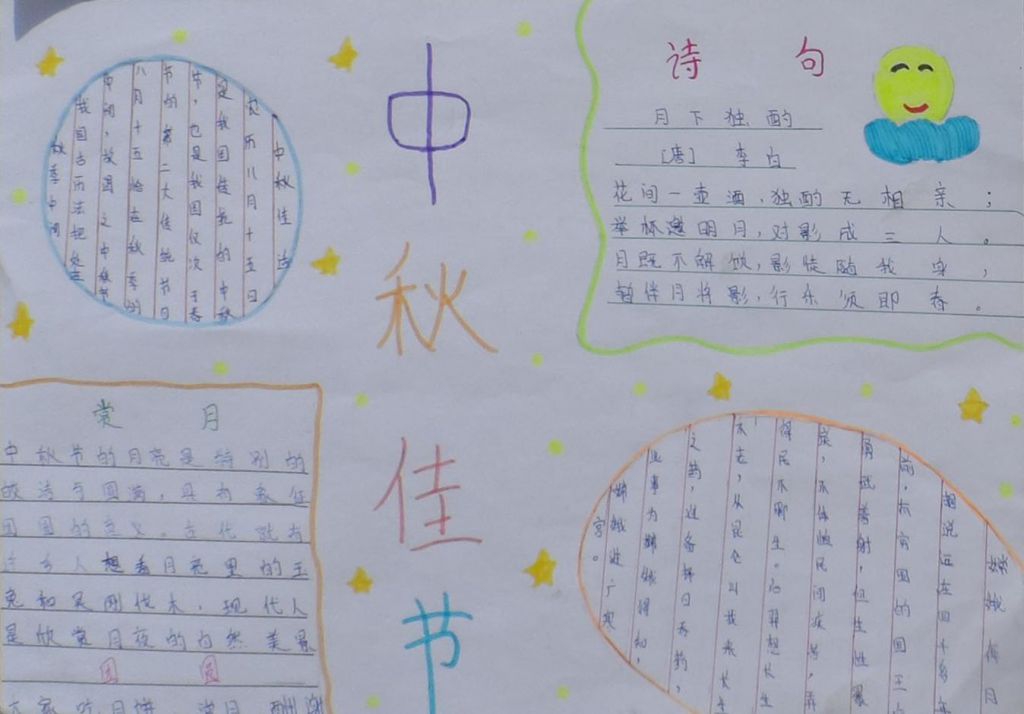 中秋佳节
诗 句
月下独酌
[唐] 李白
花间一壶酒,独酌无相亲;
举杯邀明月,对影成三人。
月既不解饮,影徒随我身;
暂伴月将影,行乐须即春。
中秋佳话
农历八月十五日
是我国传统的中秋
节,也是我国仅次于春
节的第二大传统节日
八月十五恰在秋季的
中间,故谓之中秋节
我国古历法把处在
秋季中间
赏 月
中秋节的月亮是特别的
皎洁与圆满,具有象征
团圆的意义。古代就有
人想看月亮里的玉
兔和吴刚伐木,现代人
是欣赏月夜的自然美景
团 圆
大家吃月饼、赏月
嫦娥奔月
相传远在
前,有穷国的国王
勇武善射,但生性暴
戾,不体恤民间疾苦,弄
得民不聊生。后羿想长生
不老,从昆仑山
之药,
此事为嫦娥得知,
嫦娥进广寒
宫。